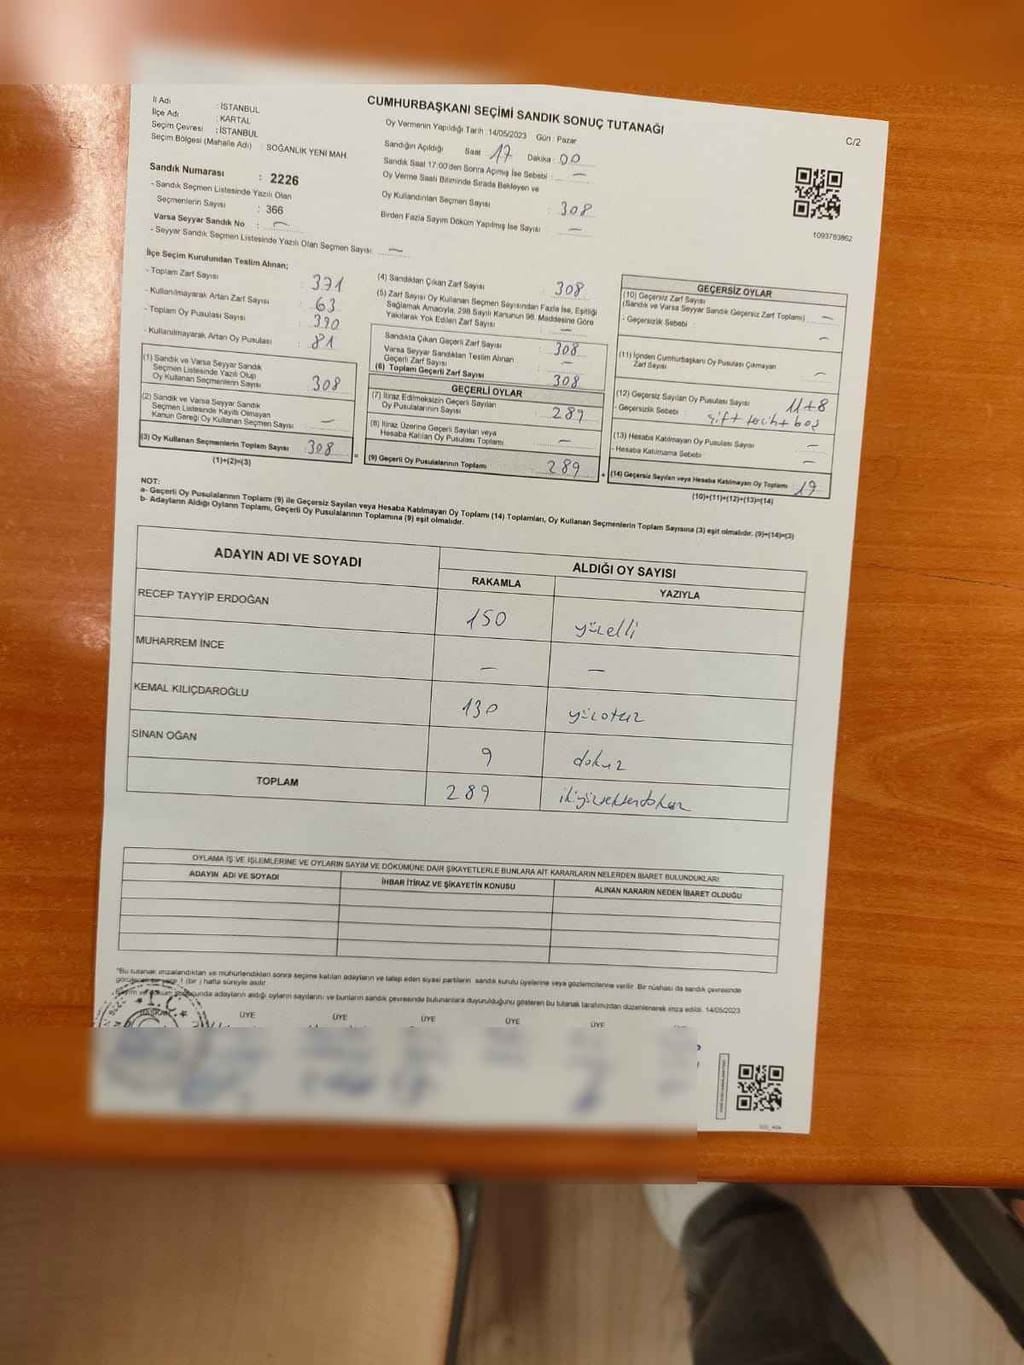 CUMHURBAŞKANI SEÇİMİ SANDIK SONUÇ TUTANAĞI
C/2
İl Adı : İSTANBUL
İlçe Adı : KARTAL
Seçim Çevresi : İSTANBUL
Seçim Bölgesi (Mahalle Adı) : SOĞANLIK YENİ MAH.
Oy Vermenin Yapıldığı Tarih : 14/05/2023 Gün : Pazar
Sandığın Açıldığı Saat 17 Dakika : 00
Sandık Saat 17:00'den Sonra Açılmış İse Sebebi : —
Oy Verme Saati Bitiminde Sırada Bekleyen ve
Oy Kullandırılan Seçmen Sayısı : 308
Birden Fazla Sayım Döküm Yapılmış İse Sayısı : —
1093783862
Sandık Numarası : 2226
- Sandık Seçmen Listesinde Yazılı Olan
Seçmenlerin Sayısı : 366
Varsa Seyyar Sandık No : —
- Seyyar Sandık Seçmen Listesinde Yazılı Olan Seçmen Sayısı: —
İlçe Seçim Kurulundan Teslim Alınan;
- Toplam Zarf Sayısı : 371
- Kullanılmayarak Artan Zarf Sayısı : 63
- Toplam Oy Pusulası Sayısı : 390
- Kullanılmayarak Artan Oy Pusulası : 81
(1) Sandık ve Varsa Seyyar Sandık
Seçmen Listesinde Yazılı Olup
Oy Kullanan Seçmenlerin Sayısı : 308
(2) Sandık ve Varsa Seyyar Sandık
Seçmen Listesinde Kayıtlı Olmayan
Kanun Gereği Oy Kullanan Seçmen Sayısı : —
(3) Oy Kullanan Seçmenlerin Toplam Sayısı : 308
(1)+(2)=(3)
(4) Sandıktan Çıkan Zarf Sayısı : 308
(5) Zarf Sayısı Oy Kullanan Seçmen Sayısından Fazla İse, Eşitliği
Sağlamak Amacıyla, 298 Sayılı Kanunun 98. Maddesine Göre
Yakılarak Yok Edilen Zarf Sayısı : —
Sandıkta Çıkan Geçerli Zarf Sayısı : 308
Varsa Seyyar Sandıktan Teslim Alınan
Geçerli Zarf Sayısı : —
(6) Toplam Geçerli Zarf Sayısı : 308
GEÇERLİ OYLAR
(7) İtiraz Edilmeksizin Geçerli Sayılan
Oy Pusulalarının Sayısı : 289
(8) İtiraz Üzerine Geçerli Sayılan veya
Hesaba Katılan Oy Pusulası Toplamı : —
(9) Geçerli Oy Pusulalarının Toplamı : 289
GEÇERSİZ OYLAR
(10) Geçersiz Zarf Sayısı
(Sandık ve Varsa Seyyar Sandık Geçersiz Zarf Toplamı) : —
- Geçersizlik Sebebi : —
(11) İçinden Cumhurbaşkanı Oy Pusulası Çıkmayan
Zarf Sayısı : —
(12) Geçersiz Sayılan Oy Pusulası Sayısı : 11+8
- Geçersizlik Sebebi : çift tercih + boş
(13) Hesaba Katılmayan Oy Pusulası Sayısı : —
- Hesaba Katılmama Sebebi : —
(14) Geçersiz Sayılan veya Hesaba Katılmayan Oy Toplamı : 19
(10)+(11)+(12)+(13)=(14)
NOT:
a- Geçerli Oy Pusulalarının Toplamı (9) ile Geçersiz Sayılan veya Hesaba Katılmayan Oy Toplamı (14) Toplamları, Oy Kullanan Seçmenlerin Toplam Sayısına (3) eşit olmalıdır. (9)+(14)=(3)
b- Adayların Aldığı Oyların Toplamı, Geçerli Oy Pusulalarının Toplamına (9) eşit olmalıdır.
ADAYIN ADI VE SOYADI ALDIĞI OY SAYISI
RAKAMLA YAZIYLA
RECEP TAYYİP ERDOĞAN 150 yüzelli
MUHARREM İNCE — —
KEMAL KILIÇDAROĞLU 130 yüzotuz
SİNAN OĞAN 9 dokuz
TOPLAM 289 ikiyüzseksendokuz
OYLAMA İŞ VE İŞLEMLERİNE VE OYLARIN SAYIM VE DÖKÜMÜNE DAİR ŞİKAYETLERLE BUNLARA AİT KARARLARIN NELERDEN İBARET BULUNDUKLARI
ADAYIN ADI VE SOYADI İHBAR İTİRAZ VE ŞİKAYETİN KONUSU ALINAN KARARIN NEDEN İBARET OLDUĞU
*Bu tutanak imzalandıktan ve mühürlendikten sonra seçime katılan adayların ve talep eden siyasi partilerin sandık kurulu üyelerine veya gözlemcilerine verilir. Bir nüshası da sandık çevresinde
1 (bir) hafta süreyle asılır.
adayların aldığı oyların sayılarını ve bunların sandık çevresinde bulunanlara duyurulduğunu gösteren bu tutanak tarafımızdan düzenlenerek imza edildi. 14/05/2023
T.C.
ÜYE ÜYE ÜYE ÜYE ÜYE